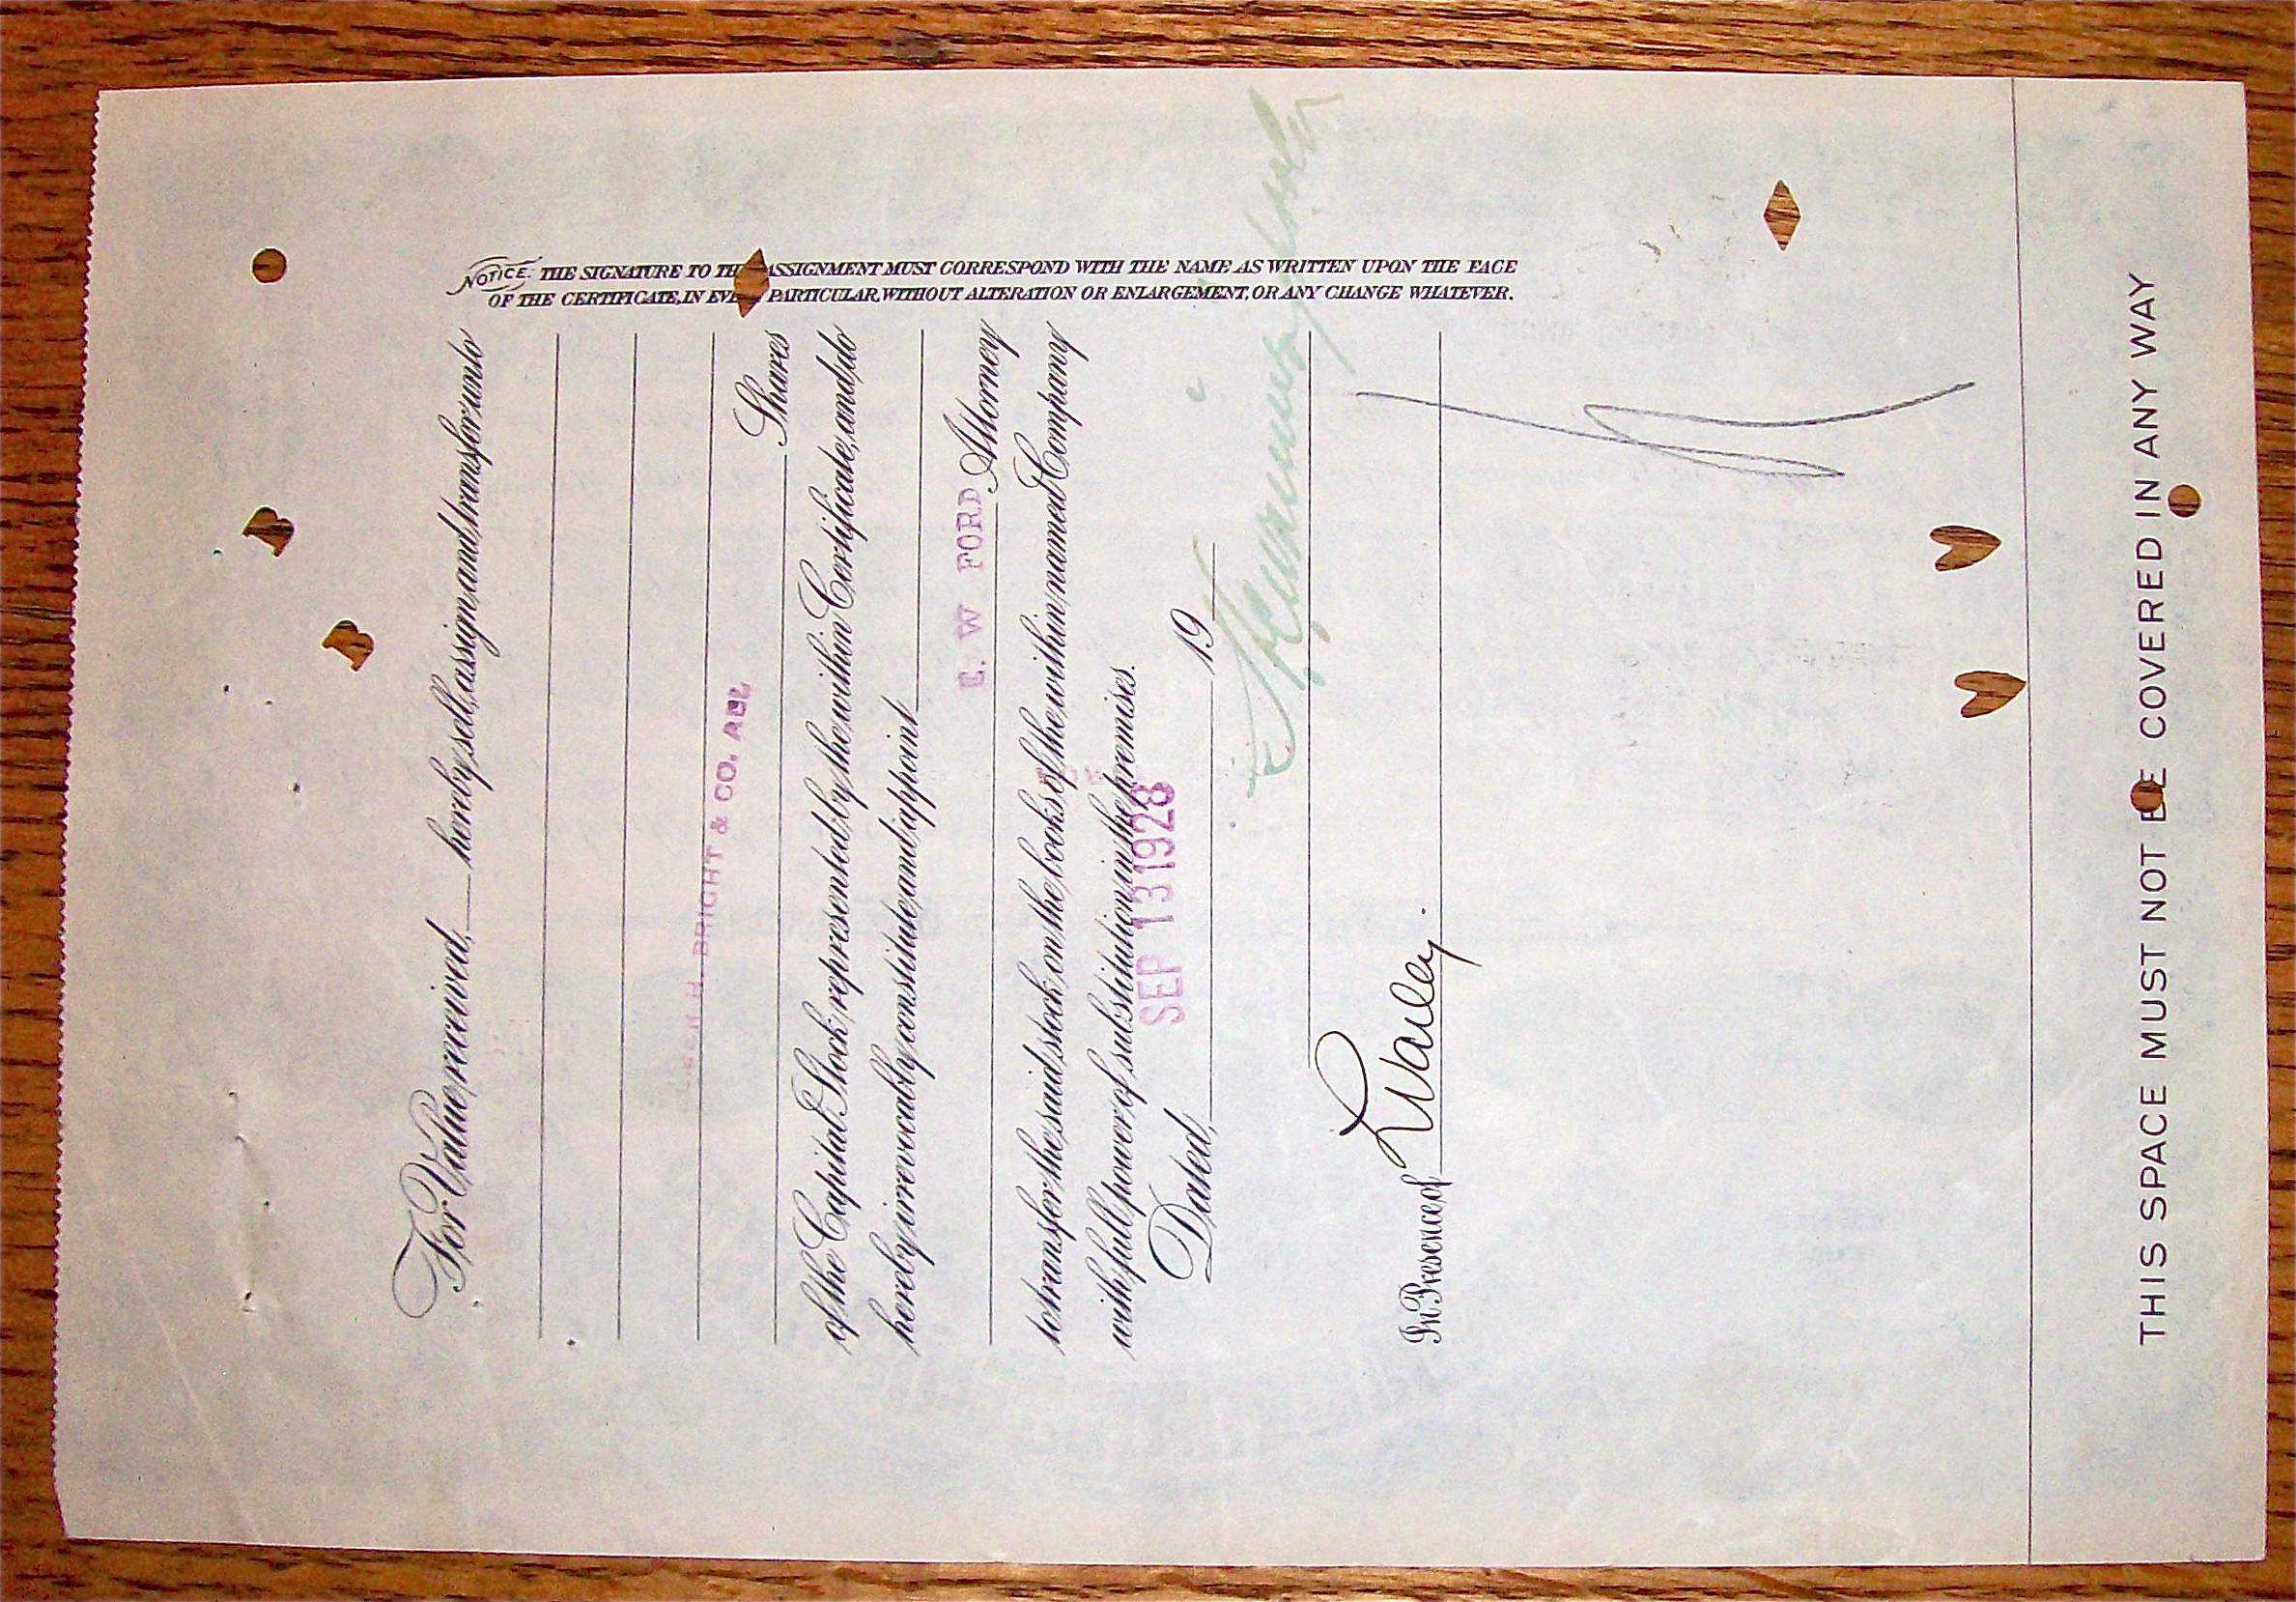 For Value received, hereby sell, assign and transfer unto
H. BRIGHT & CO. ALL
Shares
of the Capital Stock represented by the within Certificate, and do
hereby irrevocably constitute and appoint
E. W FORD Attorney
to transfer the said stock on the books of the within named Company
with full power of substitution in the premises.
SEP 13 1928
Dated, 19
In Presence of
NOTICE. THE SIGNATURE TO THIS ASSIGNMENT MUST CORRESPOND WITH THE NAME AS WRITTEN UPON THE FACE
OF THE CERTIFICATE, IN EVERY PARTICULAR, WITHOUT ALTERATION OR ENLARGEMENT, OR ANY CHANGE WHATEVER.
THIS SPACE MUST NOT BE COVERED IN ANY WAY